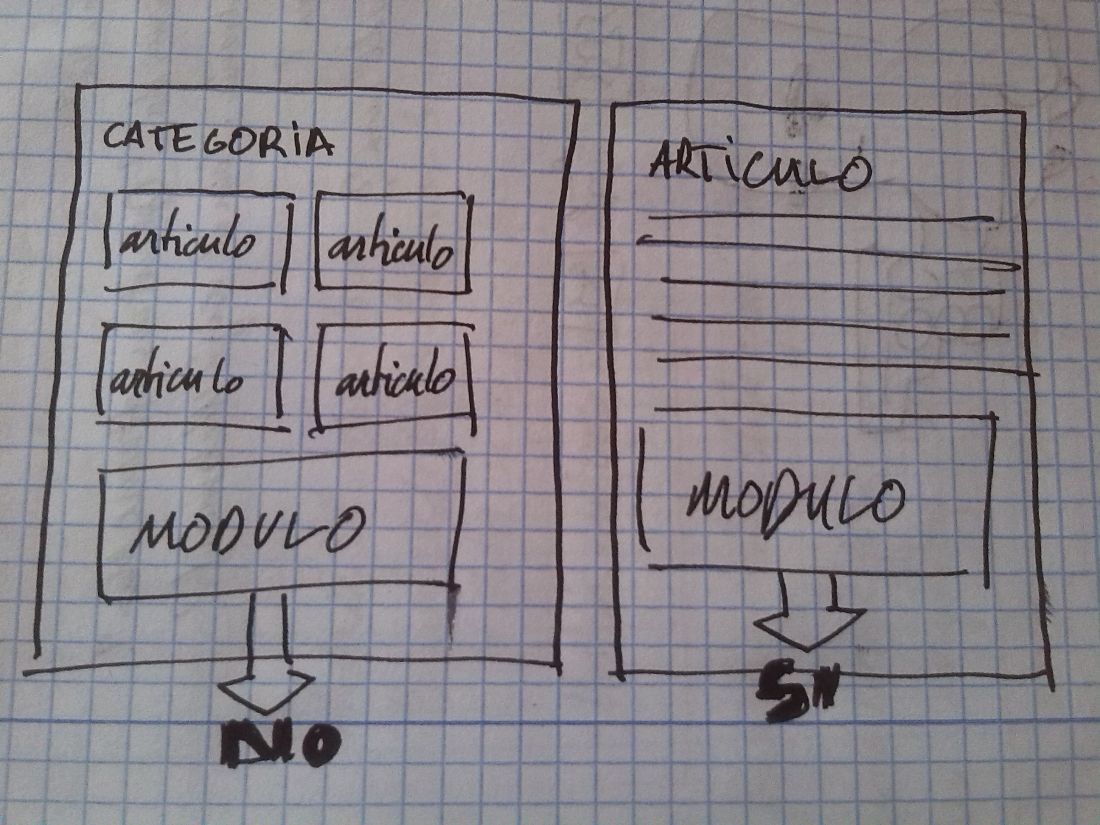 CATEGORIA
articulo articulo
articulo articulo
MODULO
NO
ARTiCULO
MODULO
Si